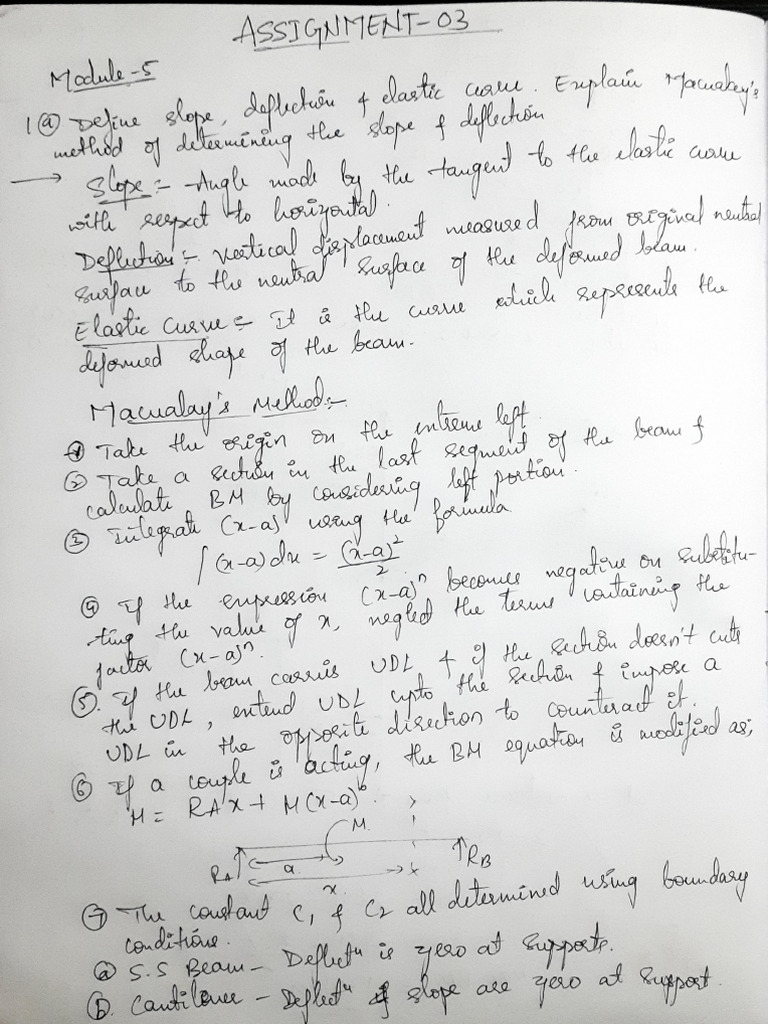 ASSIGNMENT-03
Module-5
1 (a) Define slope, deflection & elastic curve. Explain Macualay's
method of determining the slope & deflection
→ Slope:- Angle made by the tangent to the elastic curve
with respect to horizontal.
Deflection:- vertical displacement measured from original neutral
surface to the neutral surface of the deformed beam.
Elastic Curve:- It is the curve which represents the
deformed shape of the beam.
Macualay's Method:-
① Take the origin on the extreme left.
② Take a section in the last segment of the beam &
calculate BM by considering left portion.
③ Integrate (x-a) using the formula
∫(x-a)dx = (x-a)²/2
④ If the expression (x-a)ⁿ becomes negative on substitu-
ting the value of x, neglect the terms containing the
factor (x-a)ⁿ.
⑤. If the beam carries UDL & if the section doesn't cuts
the UDL, extend UDL upto the section & impose a
UDL in the opposite direction to counteract it.
⑥ If a couple is acting, the BM equation is modified as;
M = RA x + M(x-a)⁰.
M.
RA a RB
x
⑦ The constant C1 & C2 all determined using boundary
conditions.
ⓐ S.S Beam - Deflectⁿ is zero at supports.
ⓑ. Cantilever - Deflectⁿ & slope are zero at support.